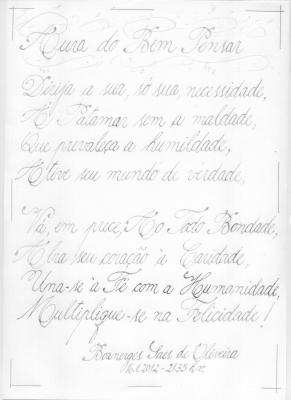 Aura do Bem Pensar
Dirija a sua, só sua, necessidade,
Ao Patamar sem a maldade,
Que prevaleça a humildade,
Ative seu mundo de verdade,
Vá, em prece, Ao Todo Bondade,
Abra seu coração à Caridade,
Una-se à Fé com a Humanidade,
Multiplique-se na Felicidade!
Boanerges Saes de Oliveira
6.1.2012 - 21:35